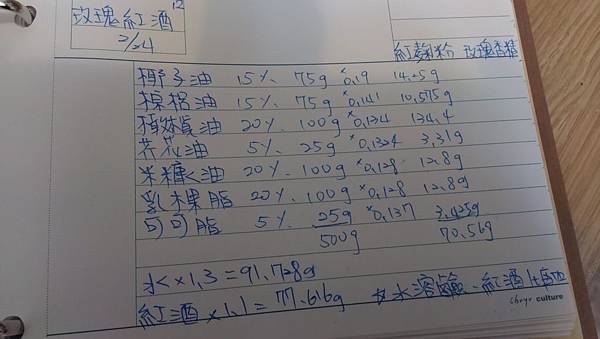 玫瑰紅酒 12
2/24
紅麴粉 玫瑰香精
椰子油 15% 75g ×0.19 14.25g
棕梠油 15% 75g ×0.141 10.575g
橄欖油 20% 100g ×0.134 134.4
芥花油 5% 25g ×0.1324 3.31g
米糠油 20% 100g ×0.128 12.8g
乳木果脂 20% 100g ×0.128 12.8g
可可脂 5% 25g ×0.137 3.425g
500g 70.56g
水×1.3=91.728g
紅酒×1.1=77.616g 水溶鹼 紅酒
culture